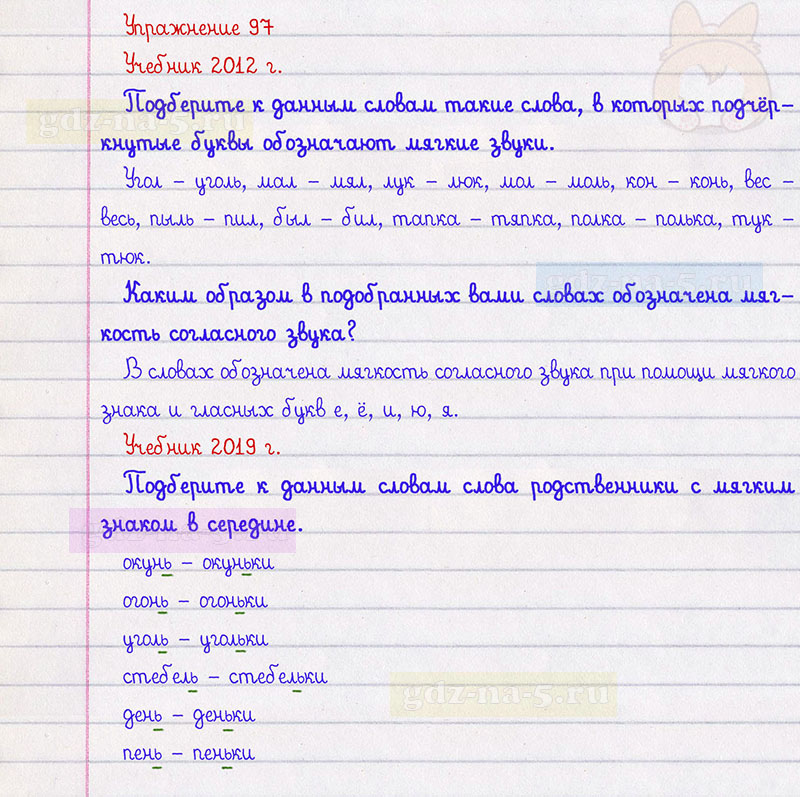 Упражнение 97
Учебник 2012 г.
Подберите к данным словам такие слова, в которых подчёр-
кнутые буквы обозначают мягкие звуки.
gdz-na-5.ru
Угол – уголь, мал – мял, лук – люк, мол – моль, кон – конь, вес –
весь, пыль – пил, был – бил, тапка – тяпка, полка – полька, тук –
тюк.
gdz-na-5.ru
Каким образом в подобранных вами словах обозначена мяг-
кость согласного звука?
В словах обозначена мягкость согласного звука при помощи мягкого
знака и гласных букв е, ё, и, ю, я.
Учебник 2019 г.
Подберите к данным словам слова родственники с мягким
знаком в середине.
окунь – окуньки
огонь – огоньки
уголь – угольки
стебель – стебельки
gdz-na-5.ru
день – деньки
пень – пеньки